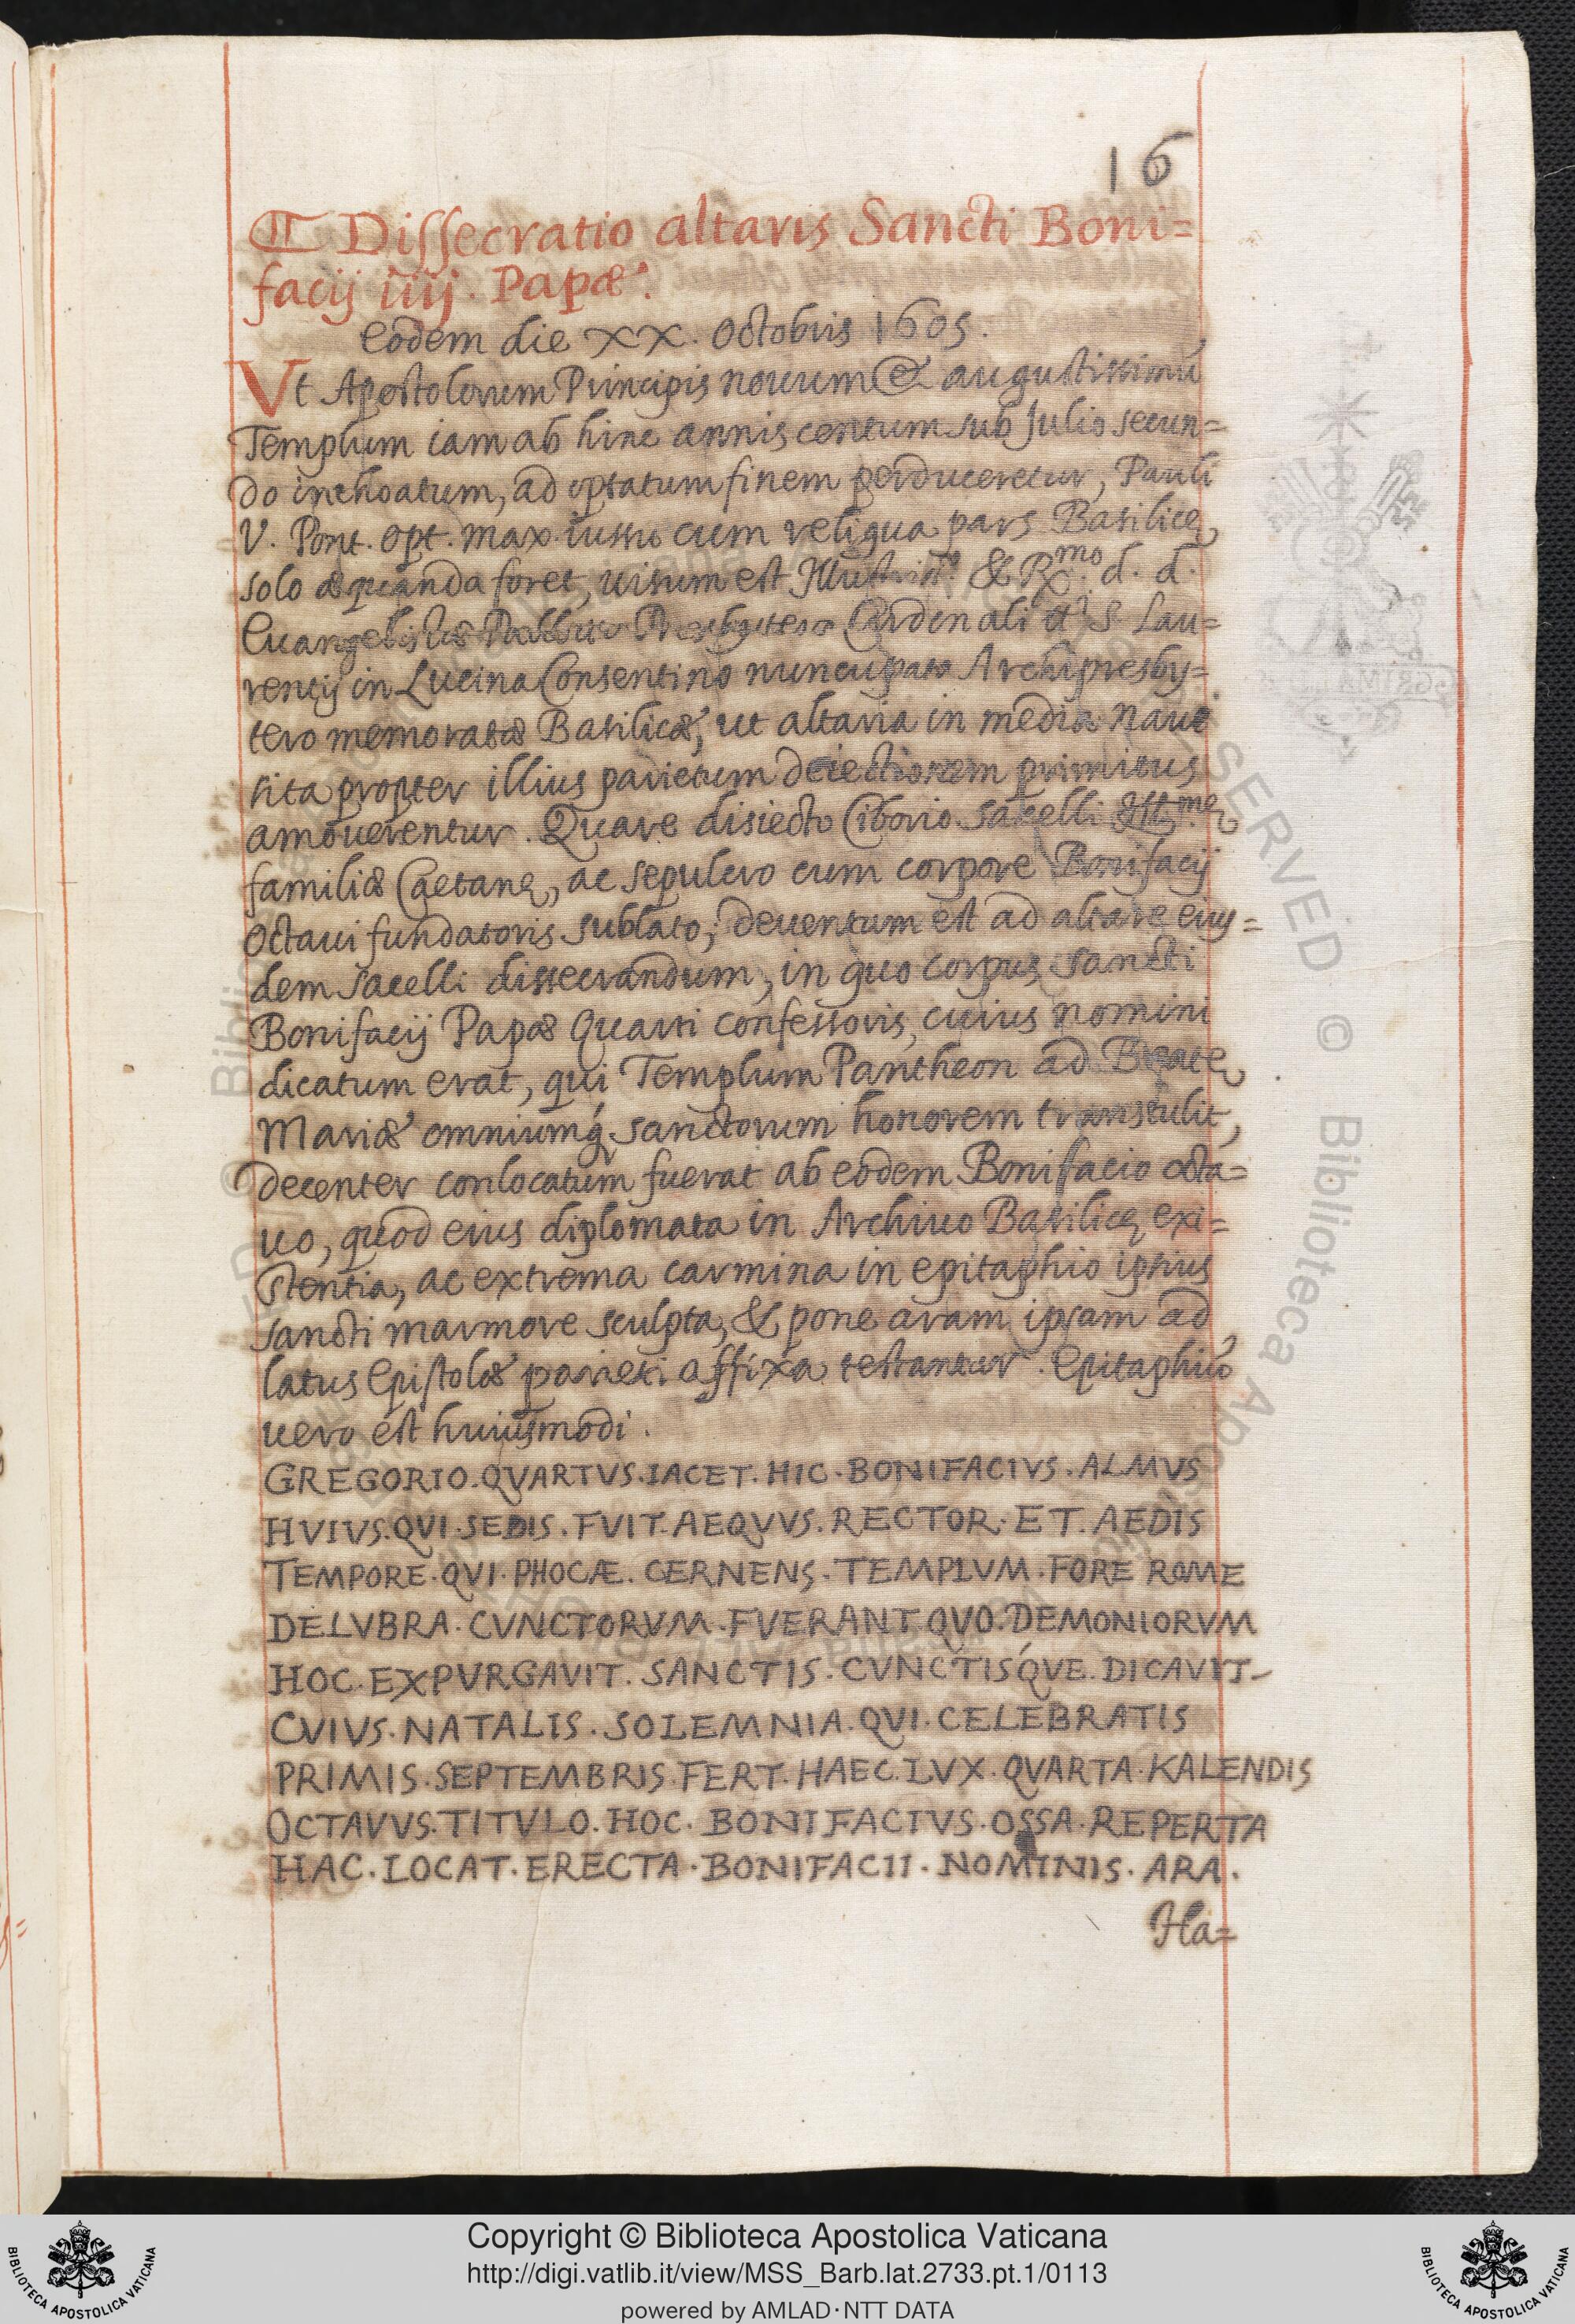 16
Dissecratio altaris Sancti Boni=
facij iiij. Papæ.
Eodem die XX. Octobris 1605.
Vt Apostolorum Principis nouum & augustissimũ
Templum iam ab hinc annis centum sub Julio secun=
do inchoatum, ad optatum finem perduceretur, Pauli
V. Pont. opt. max. iussu cum reliqua pars Basilicę
solo æquanda foret, uisum est Illustriss.º & R.mo d. d.
Euangelistæ Pallotto Presbytero Cardinali tt. S. Lau=
rentij in Lucina Consentino nuncupato Archipresby=
tero memoratæ Basilicæ, ut altaria in media naue
sita propter illius parietum deiectionem primitus
amouerentur. Quare disiecto Ciborio sacelli Ill.mę
familiæ Caetanę, ac sepulcro cum corpore Bonifacij
Octaui fundatoris sublato, deuentum est ad altare eius=
dem sacelli dissecrandum, in quo corpus sancti
Bonifacij Papæ Quarti confessoris, cuius nomini
dicatum erat, qui Templum Pantheon ad Beatę
Mariæ omniumq́ sanctorum honorem transtulit,
decenter conlocatum fuerat ab eodem Bonifacio octa=
uo, quod eius diplomata in Archiuo Basilicę exi=
stentia, ac extrema carmina in epitaphio ipsius
sancti marmore sculpta, & pone aram ipsam ad
latus Epistolæ parieti affixa testantur. Epitaphiũ
uero est huiusmodi.
GREGORIO. QVARTVS. IACET. HIC. BONIFACIVS. ALMVS
HVIVS. QVI. SEDIS. FVIT. AEQVVS. RECTOR. ET. AEDIS
TEMPORE. QVI. PHOCÆ. CERNENS. TEMPLVM. FORE ROME
DELVBRA. CVNCTORVM. FVERANT. QVO. DEMONIORVM
HOC. EXPVRGAVIT. SANCTIS. CVNCTISQ́VE. DICAVIT
CVIVS. NATALIS. SOLEMNIA. QVI. CELEBRATIS
PRIMIS. SEPTEMBRIS. FERT. HAEC. LVX. QVARTA. KALENDIS
OCTAVVS. TITVLO. HOC. BONIFACIVS. OSSA. REPERTA
HAC. LOCAT. ERECTA. BONIFACII. NOMINIS. ARA.
Ha=
Copyright © Biblioteca Apostolica Vaticana
http://digi.vatlib.it/view/MSS_Barb.lat.2733.pt.1/0113
powered by AMLAD·NTT DATA
BIBLIOTECA APOSTOLICA VATICANA
BIBLIOTECA APOSTOLICA VATICANA